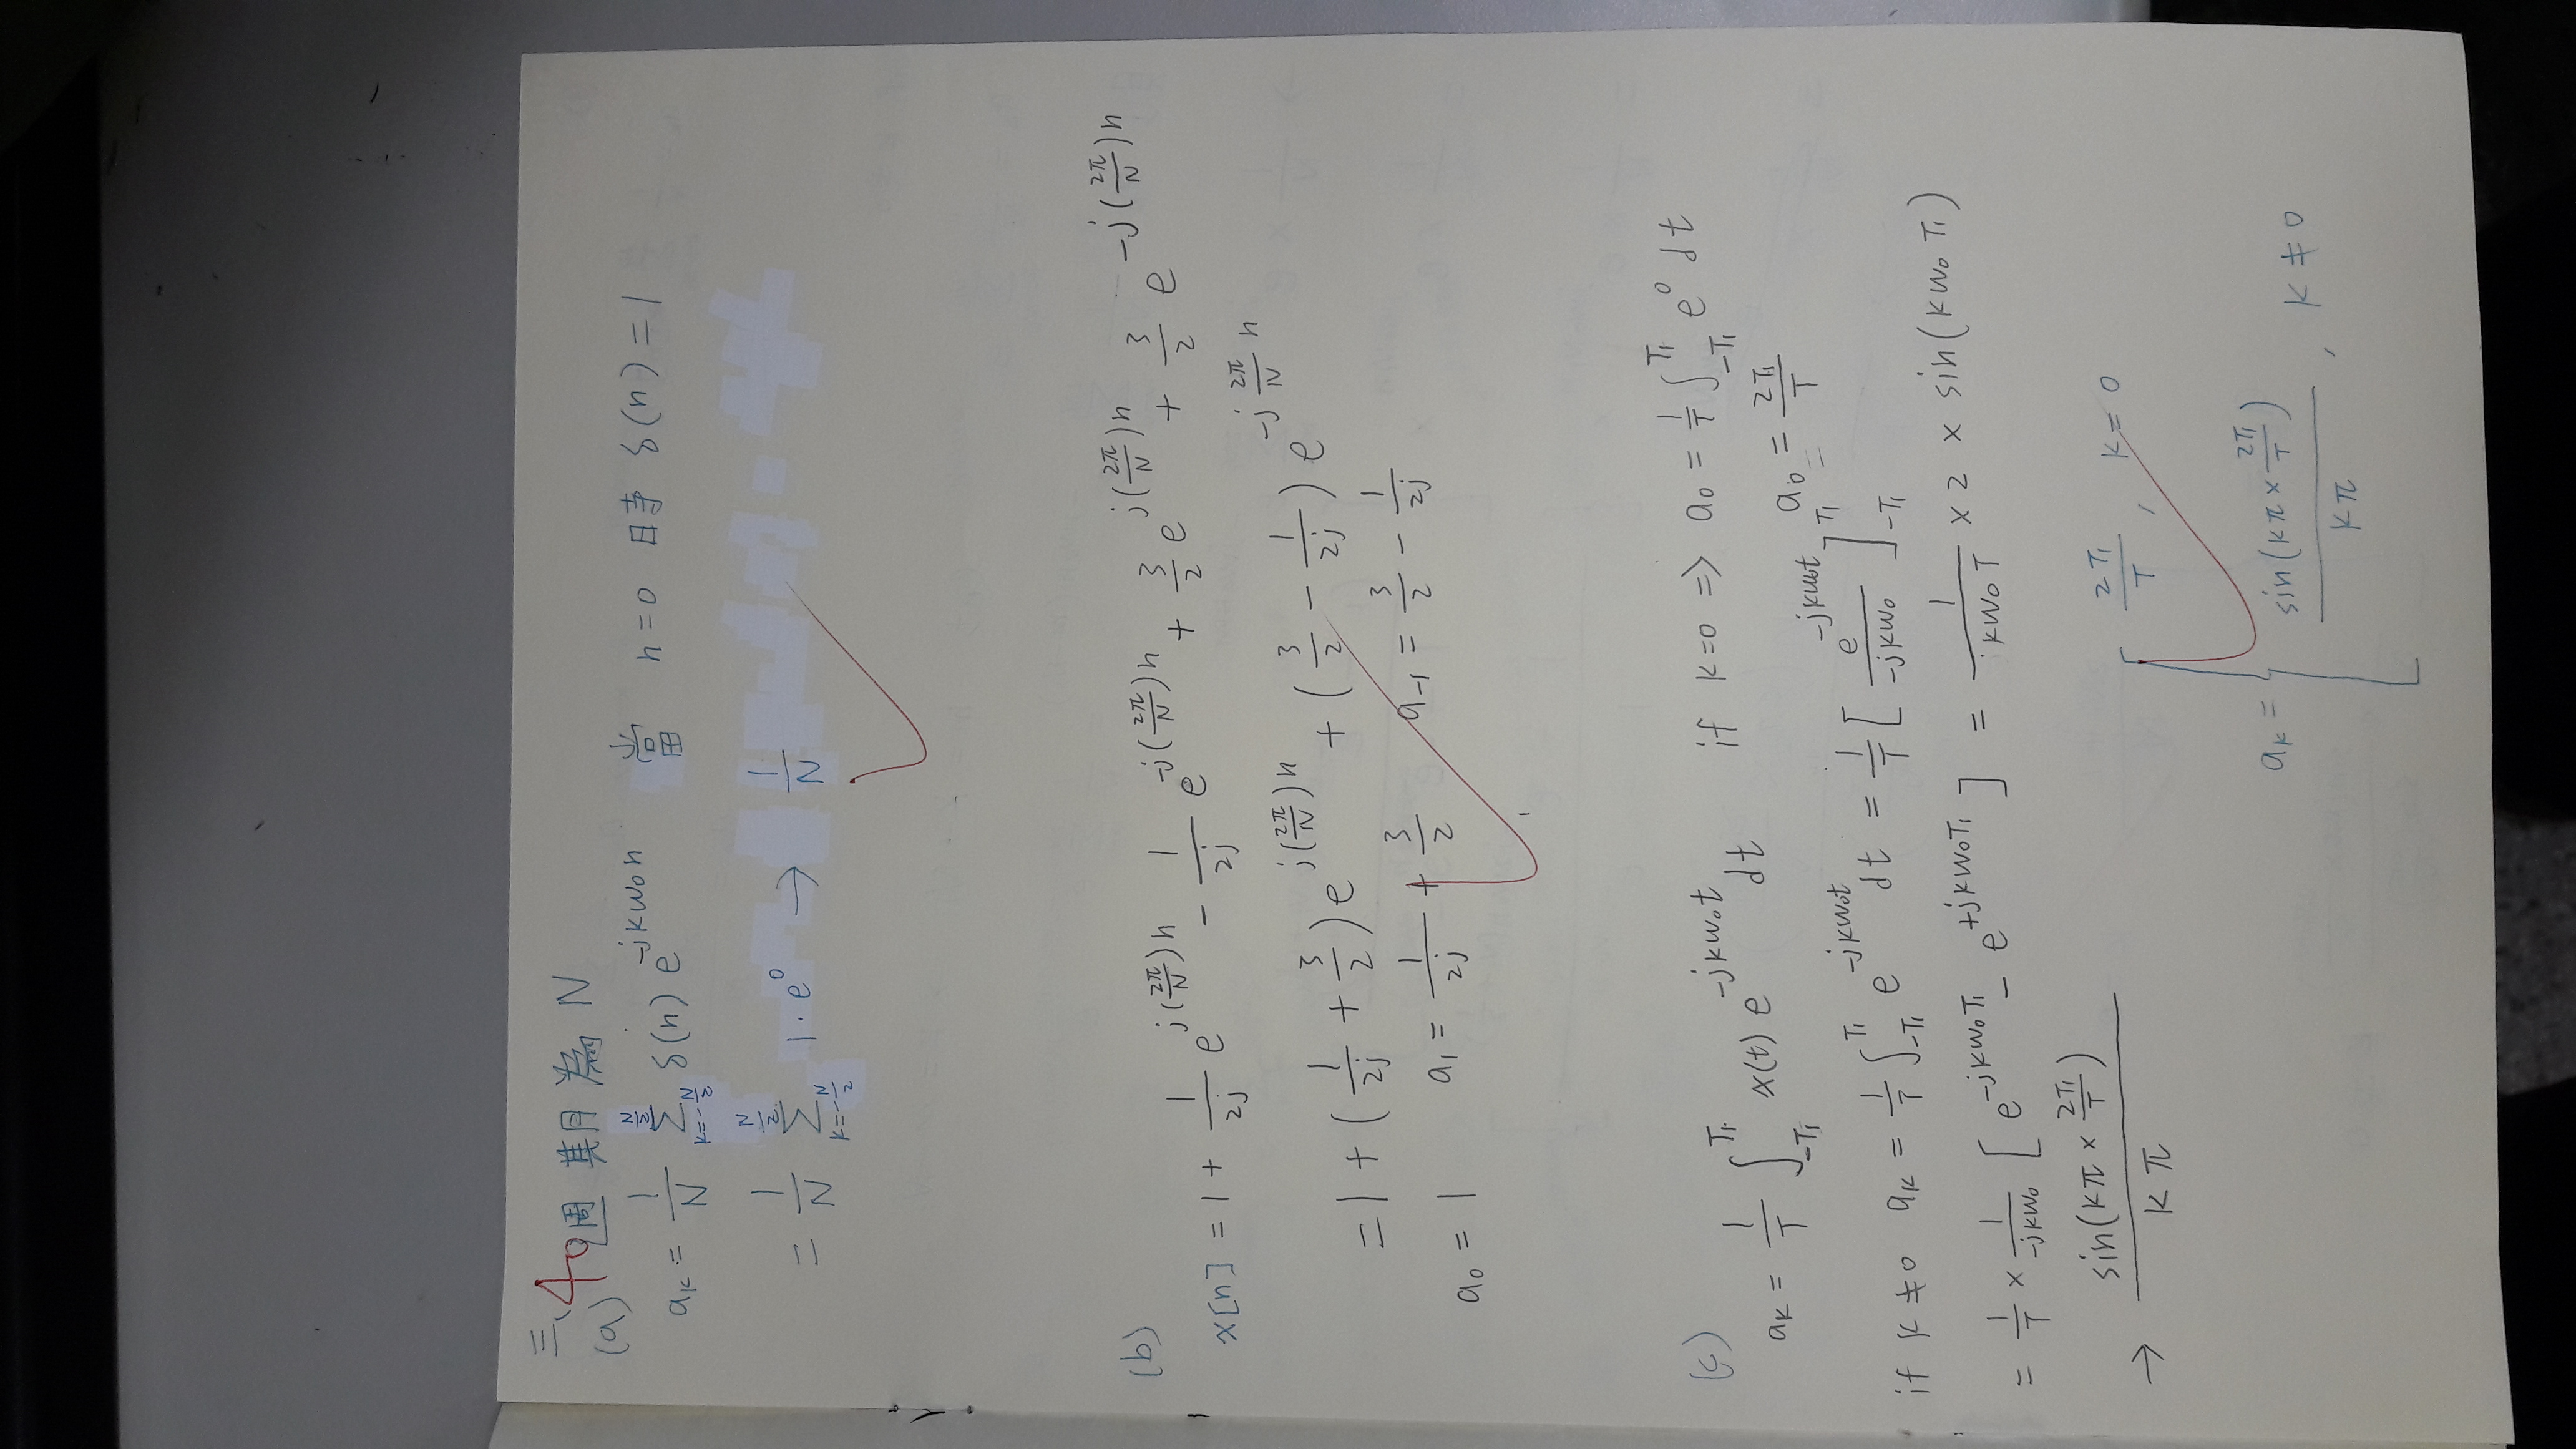 三、40
(a) 週期為 N
aₖ = 1/N Σ_{k=-N/2}^{N/2} δ(n) e^{-jkω₀n} 當 n=0 時 δ(n)=1
= 1/N Σ_{k=-N/2}^{N/2} 1·e⁰ → 1/N
(b)
x[n] = 1 + 1/2j e^{j(2π/N)n} - 1/2j e^{-j(2π/N)n} + 3/2 e^{j(2π/N)n} + 3/2 e^{-j(2π/N)n}
= 1 + (1/2j + 3/2) e^{j(2π/N)n} + (3/2 - 1/2j) e^{-j 2π/N n}
a₀ = 1 a₁ = 1/2j + 3/2 a₋₁ = 3/2 - 1/2j
(c)
aₖ = 1/T ∫_{-T₁}^{T₁} x(t) e^{-jkω₀t} dt if k=0 => a₀ = 1/T ∫_{-T₁}^{T₁} e⁰ dt
a₀ = 2T₁/T
if k≠0 aₖ = 1/T ∫_{-T₁}^{T₁} e^{-jkω₀t} dt = 1/T [ e^{-jkω₀t} / -jkω₀ ]_{-T₁}^{T₁}
= 1/T × 1/-jkω₀ [ e^{-jkω₀T₁} - e^{+jkω₀T₁} ] = 1/kω₀T × 2 × sin(kω₀T₁)
→ sin(kπ × 2T₁/T) / kπ
aₖ = { 2T₁/T , k=0
sin(kπ × 2T₁/T) / kπ , k≠0